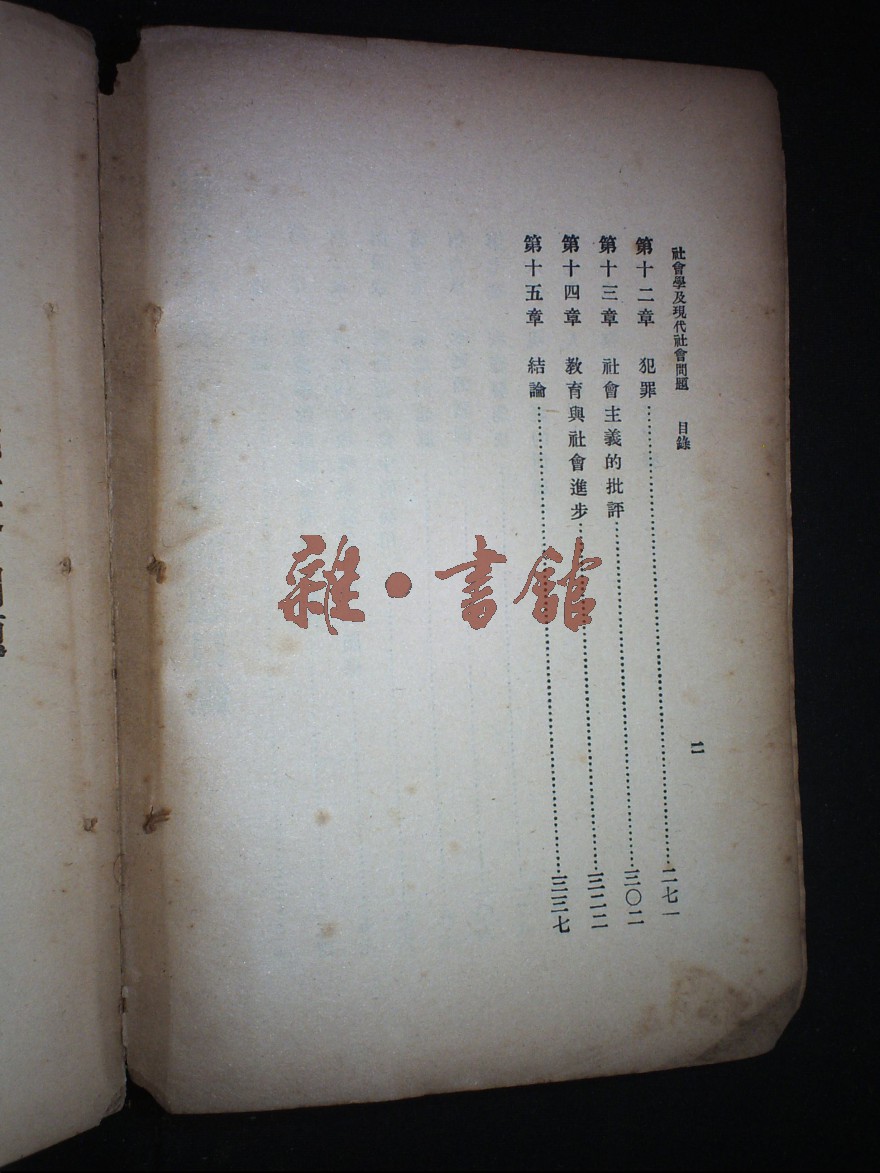 社會學及現代社會問題 目錄
二
第十二章 犯罪……二七一
第十三章 社會主義的批評……三〇二
第十四章 教育與社會進步……三二二
第十五章 結論……三三七
雜·書館